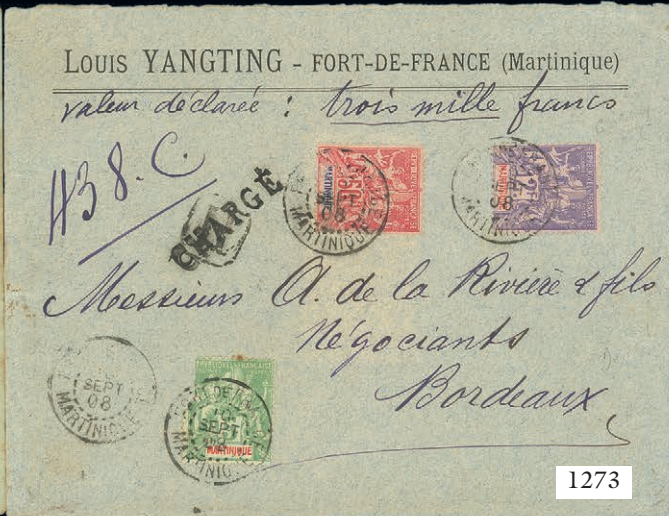 LOUIS YANGTING - FORT-DE-FRANCE (Martinique)
valeur déclarée : trois mille francs
438. C.
CHARGÉ
MARTINIQUE
50
MARTINIQUE
SEPT
08
MARTINIQUE
2F
08
MARTINIQUE
Messieurs A. de la Rivière & fils
Négociants
Bordeaux
SEPT
08
MARTINIQUE
FORT DE FRANCE
SEPT
08
MARTINIQUE
MARTINIQUE
1273